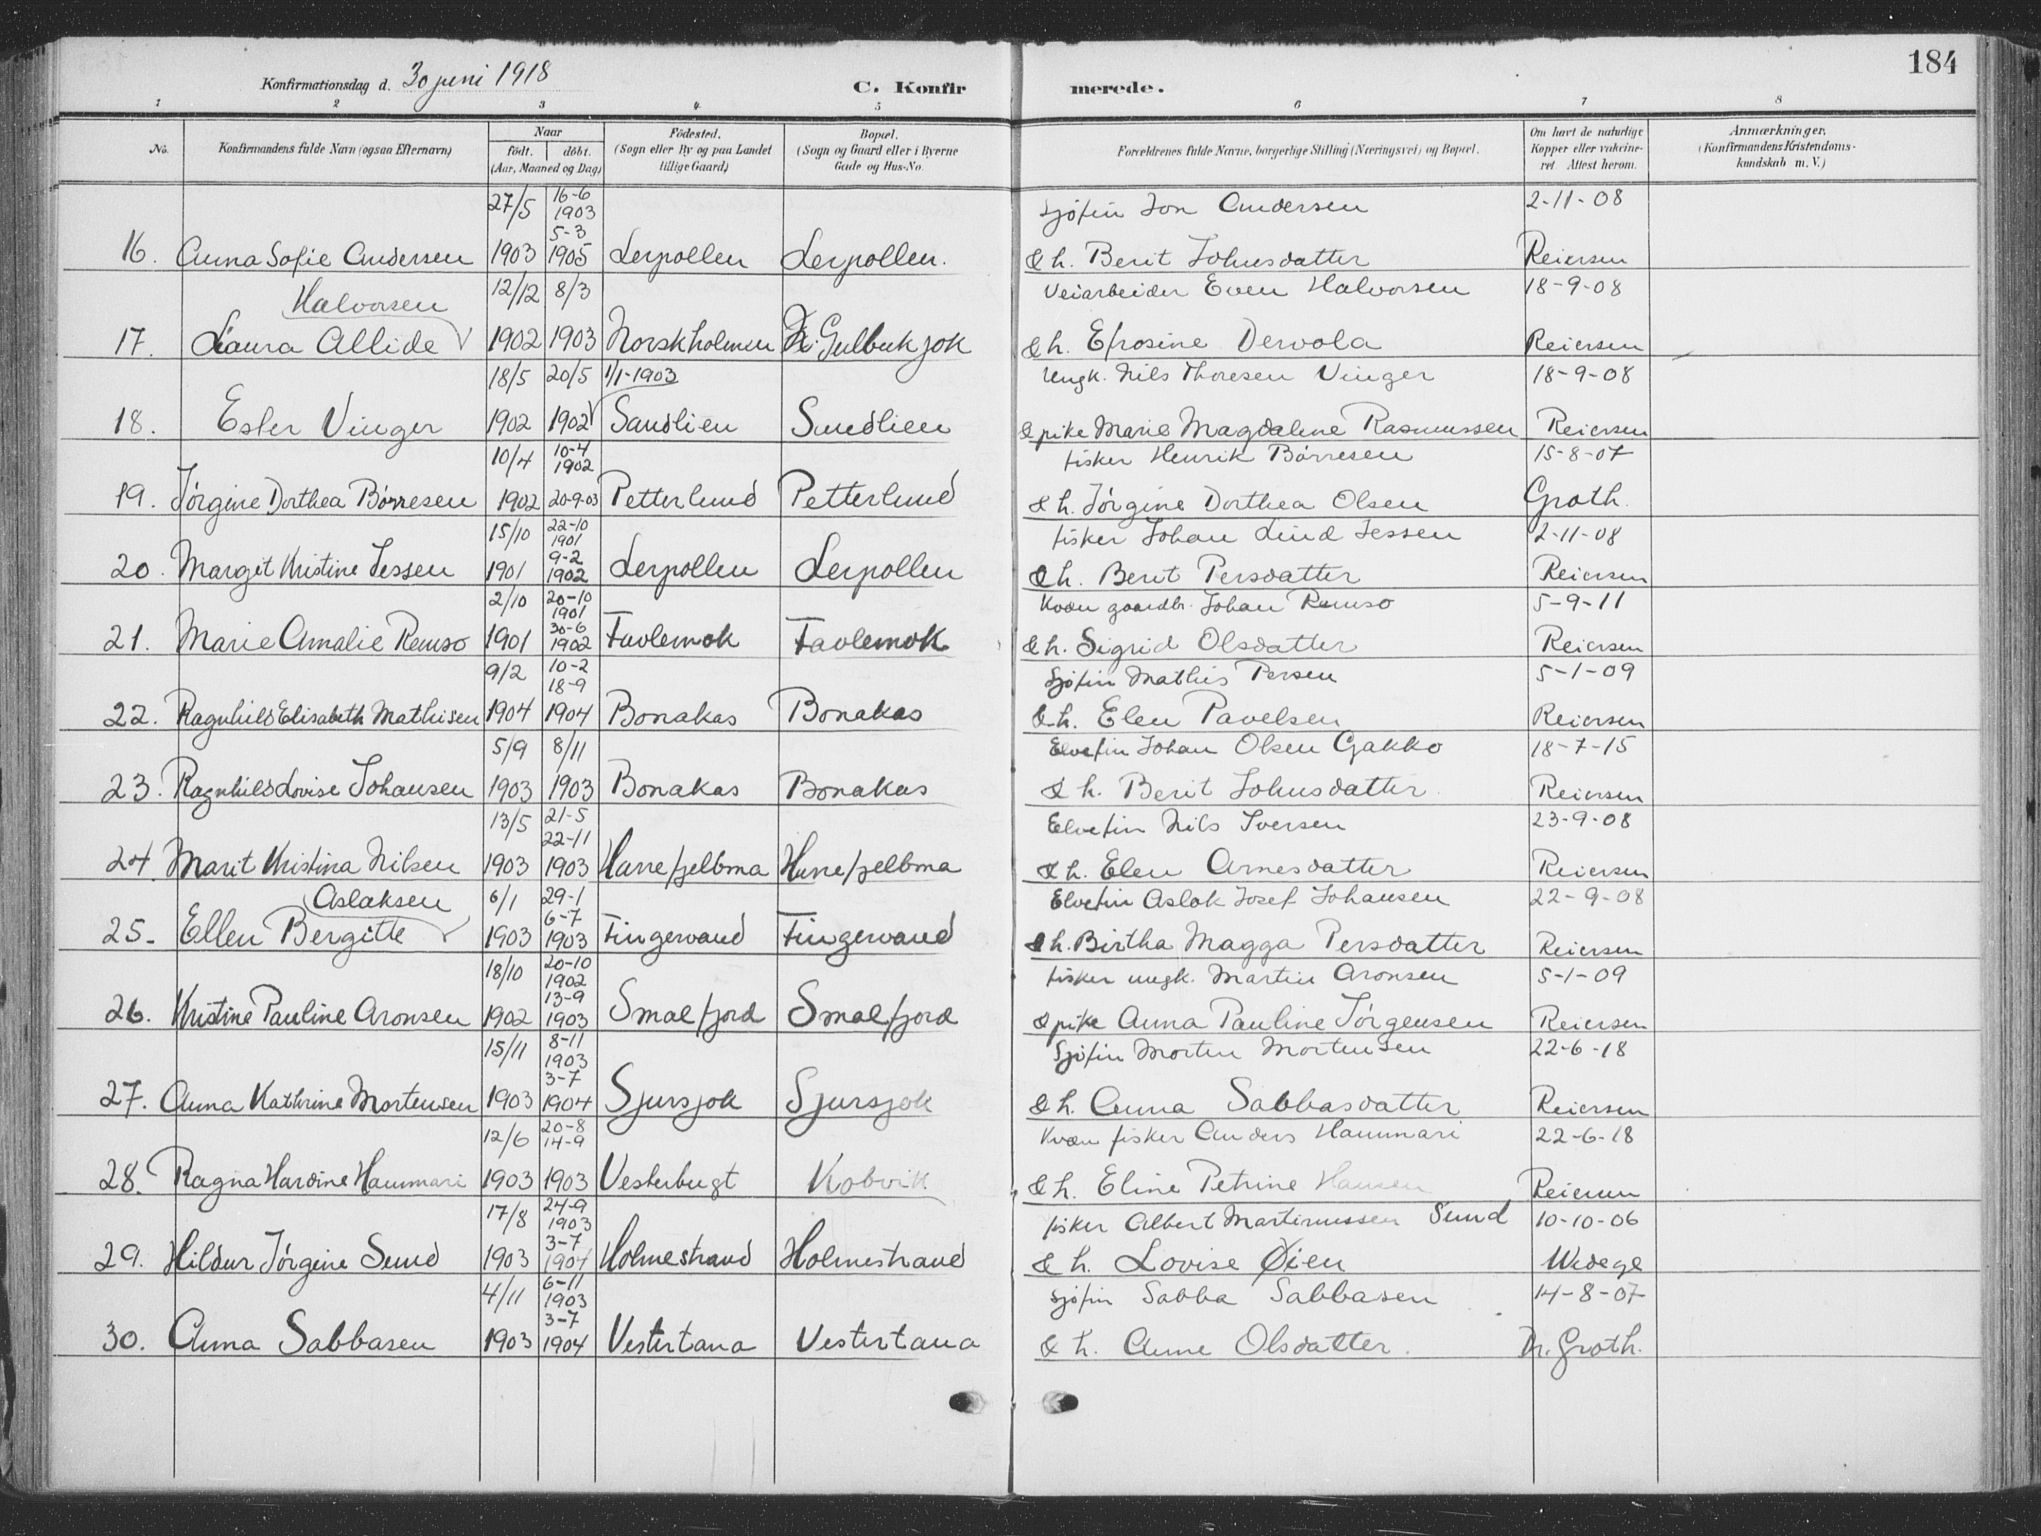 184
Konfirmationsdag d. 30 juni 1918
C. Konfir merede.
1 2 3 4 5 6 7 8
No. Konfirmandens fulde Navn (ogsaa Efternavn) Naar födt. döbt. (Aar, Maaned og Dag) Födested. (Sogn eller By og paa Landet tillige Gaard) Bopæl. (Sogn og Gaard eller i Byerne Gade og Hus-No. Forældrenes fulde Navne, borgerlige Stilling (Næringsvei) og Bopæl. Om havt de naturlige Kopper eller vakcineret Attest herom. Anmærkninger, (Konfirmandens Kristendomskundskab m. V.)
27/5 16-6 1903 Sjøfin Jon Andersen 2-11-08
16. Anna Sofie Andersen 1903 5-3 1905 Lerpollen Lerpollen. & h. Berit Johnsdatter Reiersen
Halvorsen 12/12 8/3 Veiarbeider Even Halvorsen 18-9-08
17. Laura Allide 1902 1903 Norskholmen Gulbukjok & h. Efrosine Dervola Reiersen
18/5 20/5 1/1-1903 Ungk. Nils Thoresen Vinger 18-9-08
18. Ester Vinger 1902 1902 Sandlien Sandlien & pike Marie Magdalene Rasmussen Reiersen
10/4 10-4 1902 fisker Henrik Børresen 15-8-07
19. Jørgine Dorthea Børresen 1902 20-9-03 Petterlund Petterlund & h. Jørgine Dorthea Olsen Groth.
15/10 22-10 1901 fisker Johan Lind Jessen 2-11-08
20. Margit Kristine Jessen 1901 9-2 1902 Lerpollen Lerpollen & h. Berit Persdatter Reiersen
2/10 20-10 1901 Kvæn gaardbr. Johan Remso 5-9-11
21. Marie Amalie Remso 1901 30-6 1902 Favlemok Favlemok & h. Sigrid Olsdatter Reiersen
9/2 10-2 18-9 Sjøfin Mathis Persen 5-1-09
22. Ragnhild Elisabeth Mathisen 1904 1904 Bonakas Bonakas & h. Elen Pavelsen Reiersen
5/9 8/11 Elvefin Johan Olsen Gakko 18-7-15
23. Ragnhild Lovise Johansen 1903 1903 Bonakas Bonakas & h. Berit Johnsdatter Reiersen
13/5 21-5 22-11 Elvefin Nils Iversen 23-9-08
24. Marit Kristina Nilsen 1903 1903 Harrefjelbma Harrefjelbma & h. Elen Arnesdatter Reiersen
Aslaksen 6/1 29-1 Elvefin Aslak Josef Johansen 22-9-08
25. Ellen Bergitte 1903 6-7 1903 Fingervand Fingervand & h. Birtha Magga Persdatter Reiersen
18/10 20-10 1902 fisker ungk. Martin Aronsen 5-1-09
26. Kristine Pauline Aronsen 1902 13-9 1903 Smalfjord Smalfjord & pike Anna Pauline Jørgensen Reiersen
15/11 8-11 1903 Sjøfin Morten Mortensen 22-6-18
27. Anna Kathrine Mortensen 1903 3-7 1904 Sjursjok Sjursjok & h. Anna Sabbasdatter Reiersen
12/6 20-8 14-9 Kvæn fisker Anders Hammari 22-6-18
28. Ragna Hardine Hammari 1903 1903 Vesterbugt Kobvik & h. Eline Petrine Hansen Reiersen
17/8 24-9 1903 fisker Albert Martinussen Sund 10-10-06
29. Hildur Jørgine Sund 1903 3-7 1904 Holmestrand Holmestrand & h. Lovise Øien Wedege
4/11 6-11 1903 Sjøfin Sabba Sabbasen 14-8-07
30. Anna Sabbasen 1903 3-7 1904 Vestertana Vestertana & h. Anne Olsdatter. Dr. Groth.